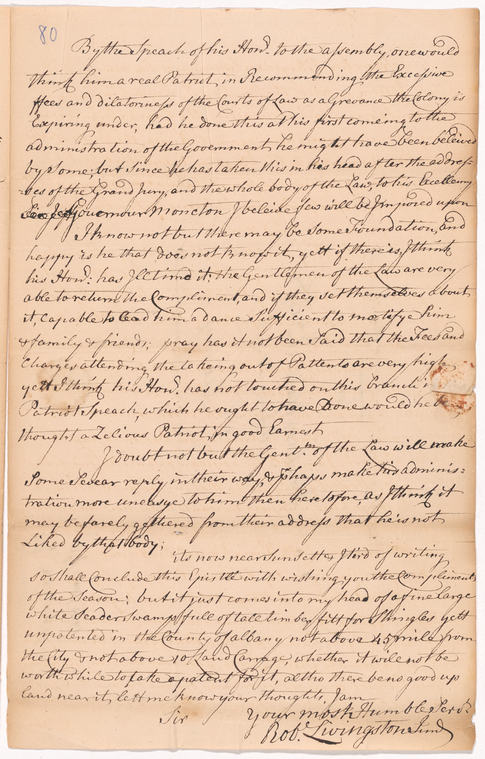 80
By the Speach of his Hon.r to the assembly, one would
think him a real Patriot, in Recommending the Excessive
ffees and dilatorness of the Courts of Law as a Grevance the Colony is
Expiring under, had he done this at his first comeing to the
administration of the Government he might have been beleived
by some; but since he has taken this in his head after the addres-
-ses of the Grand jury, and the whole body of the Law, to his Excellency
Gouvernour Moncton I beleive few will be Imposed upon
I know not but there may be Some Foundation, and
happy is he that does not know it, yett if there is, I think
his Hon.r: has Ill timd it, the Gentlemen of the Law are very
able to return the Compliment, and if they set themselves about
it, capable to lead him a dance Sufficient to mortify him
& family & friends; pray has it not been Said that the Fees and
Charges attending the takeing out of Pattents are very high
yett I think his Hon.r has not touched on this branch
Patriot Speach, which he ought to have Done would he be
thought a Zelious Patriot in good Earnest
I doubt not but the Gent.m of the Law will make
Some Sevear reply in their way, & p.haps make his adminis-
tration more uneasye to him then heretofore, as I think it
may be farely gethered from their address that he is not
Liked by that body;
its now near sunsett & I tierd of writing
so shall Conclude this Epistle with wishing you the Compliments
of the Season; but it just comes into my head of a fine large
white Seader Swamp full of tale timber fitt for Shingles yett
unpatented in the County of albany not above 45 mile from
the City & not above 10 Land Carrage, whether it will not be
worth while to take a patent for it, altho there be no good up
land near it, lett me know your thoughts, I am
Sir your most Humble Serv.t
Rob.t Livingston Jun.r